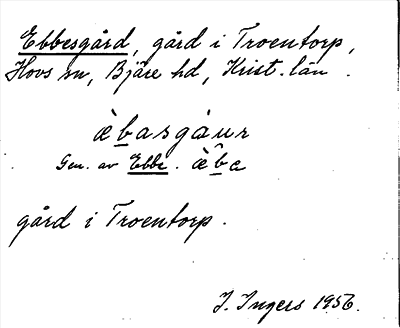 Ebbesgård, gård i Troentorp,
Hovs sn, Bjäre hd, Krist. län.
àbasgàur
Gen. av Ebbe. àba
gård i Troentorp.
I. Ingers 1956.